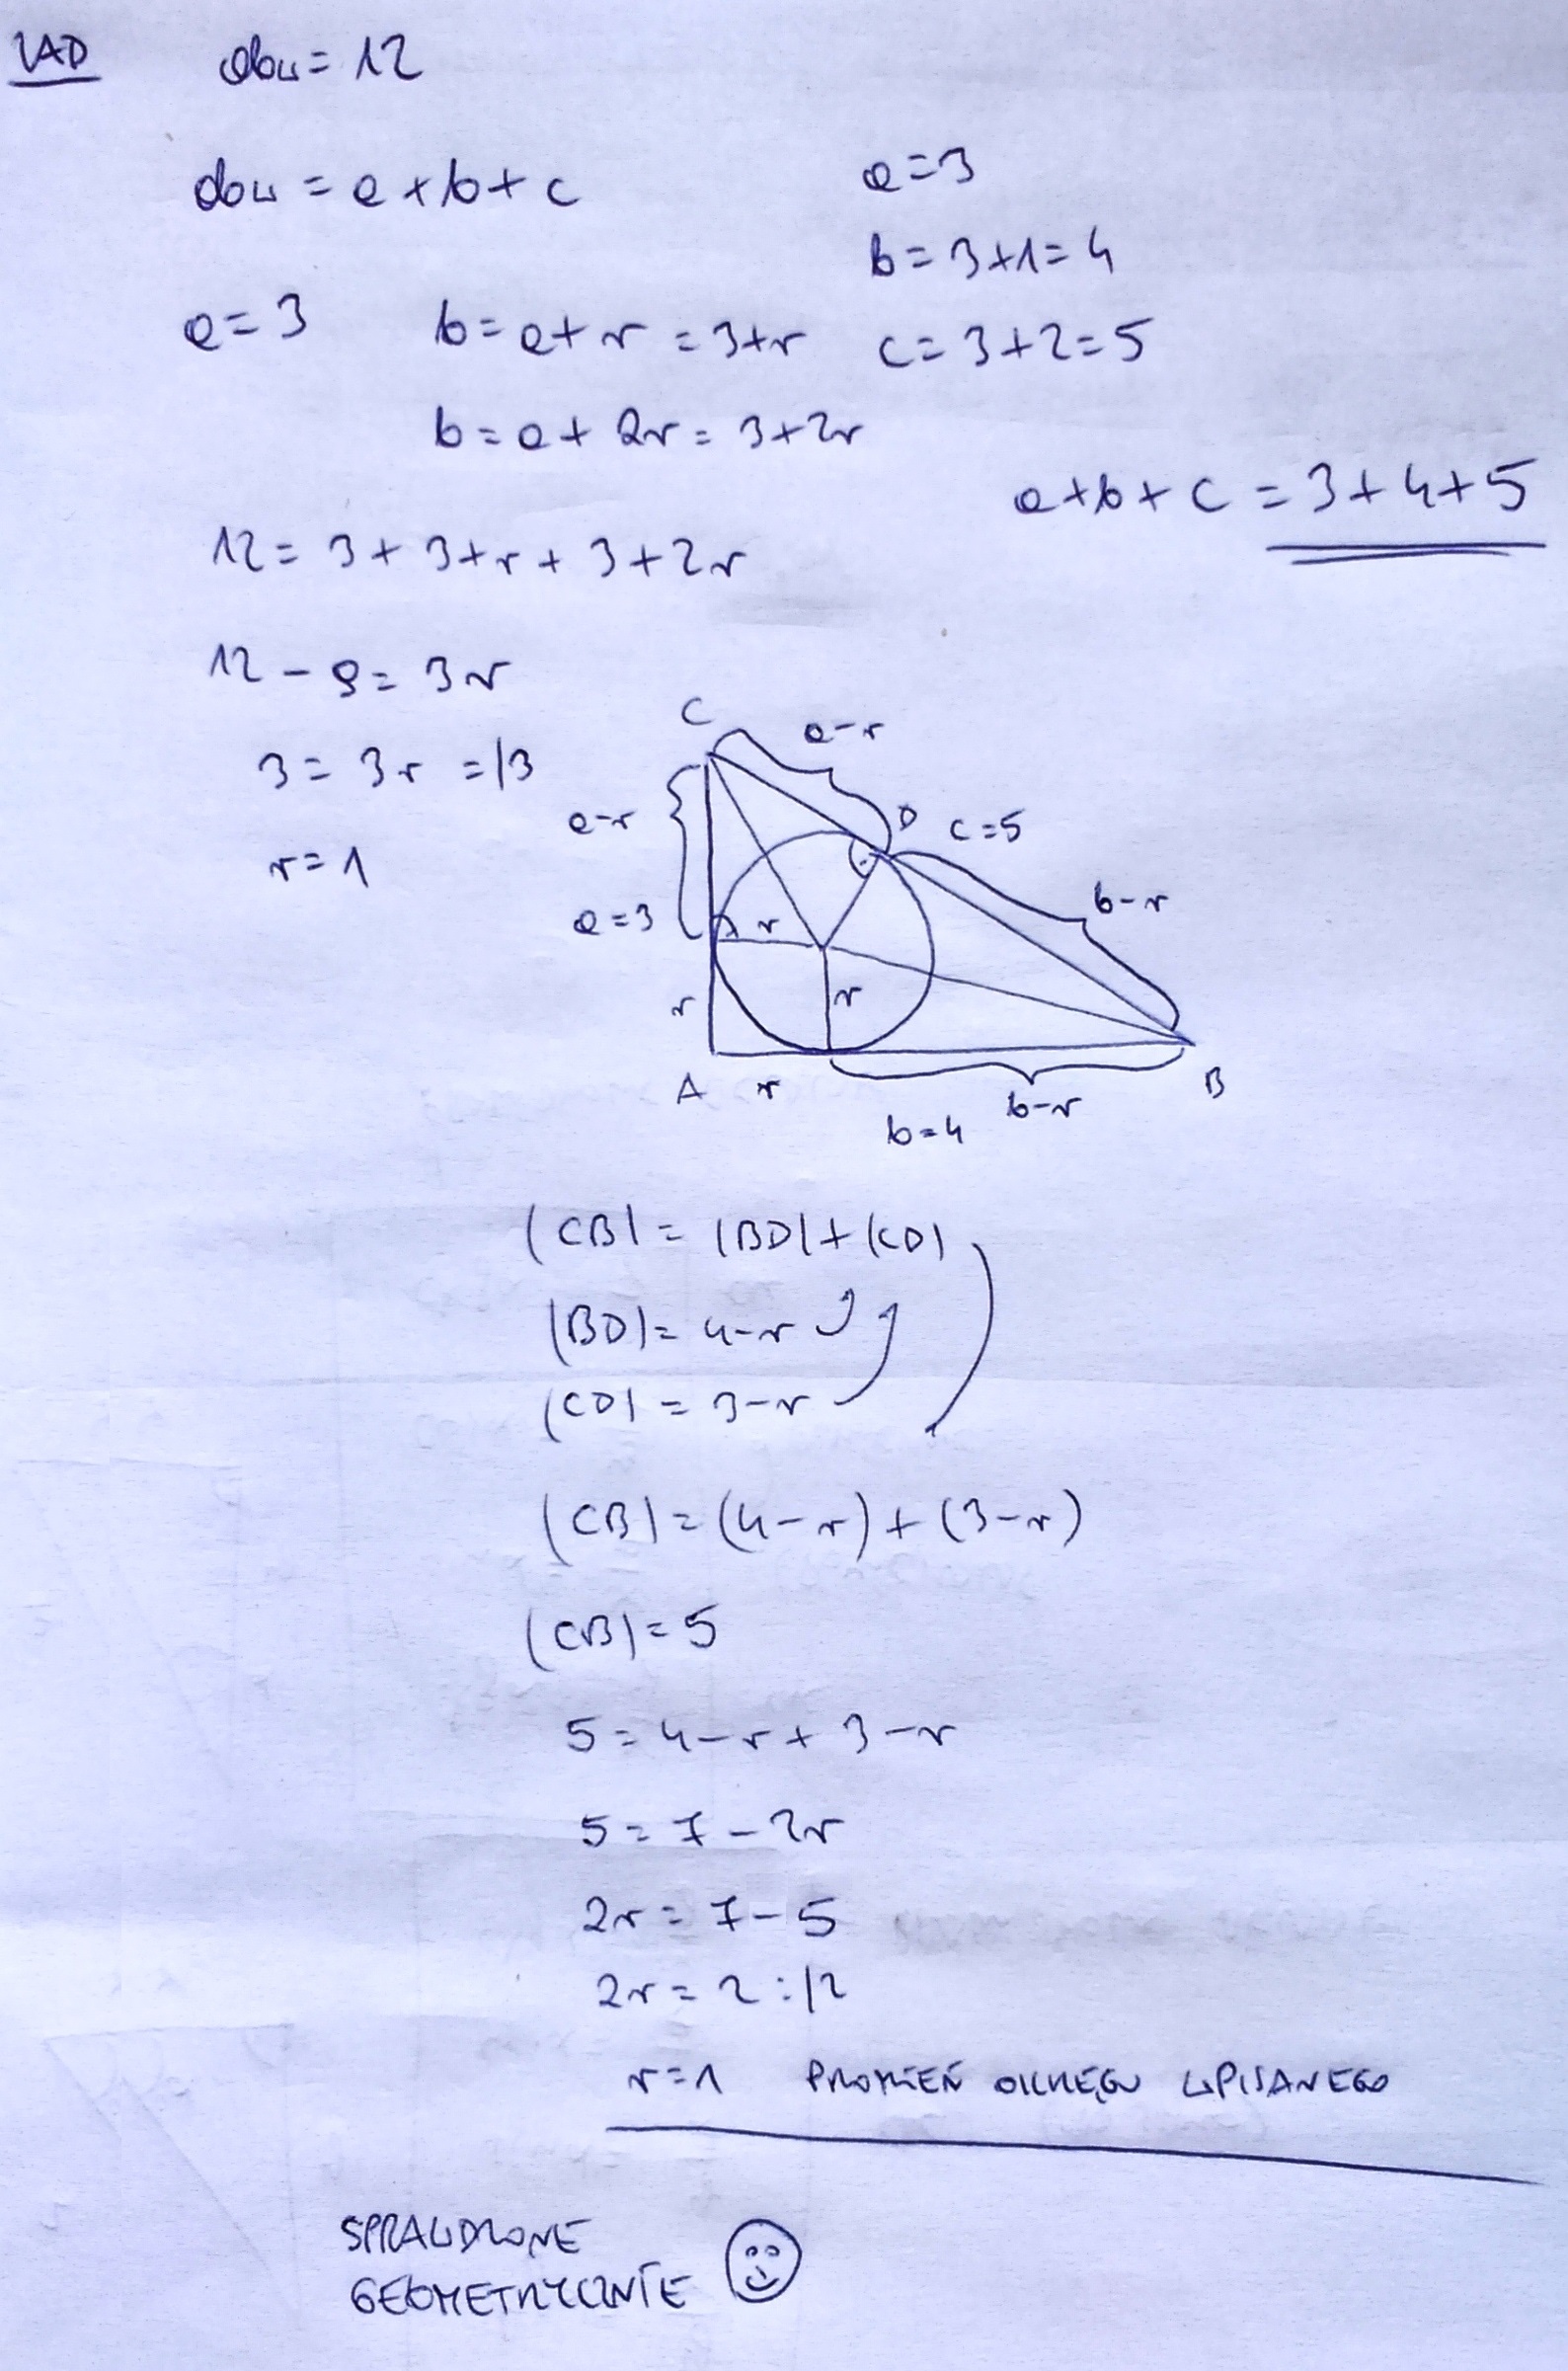 ZAD obw = 12
obw = a + b + c
a = 3 b = a + r = 3 + r
b = a + 2r = 3 + 2r
12 = 3 + 3 + r + 3 + 2r
12 - 9 = 3r
3 = 3r = /3
r = 1
a = 3
b = 3 + 1 = 4
c = 3 + 2 = 5
a + b + c = 3 + 4 + 5
C
a - r
a - r
D c = 5
b - r
a = 3
r
r
r
A r
b - r
B
b = 4
|CB| = |BD| + |CD|
|BD| = 4 - r
|CD| = 3 - r
|CB| = (4 - r) + (3 - r)
|CB| = 5
5 = 4 - r + 3 - r
5 = 7 - 2r
2r = 7 - 5
2r = 2 :/2
r = 1 PROMIEŃ OKRĘGU WPISANEGO
SPRAWDZONE
GEOMETRYCZNIE